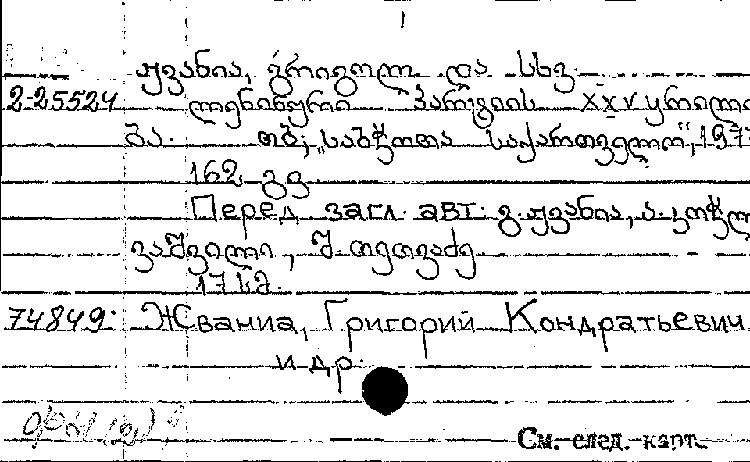 ჟვანია, გრიგოლ და სხვ.
2-25524 ლენინური პარტიის XXV ყრილო
ბა. თბ., „საბჭოთა საქართველო“, 197
162 გვ.
Перед загл. авт: გ. ჟვანია, ა. კოჭლა
ვაშვილი, შ. თეთვაძე
17 სმ.
74849. Жвания, Григорий Кондратьевич
и др.
См. след. карт.